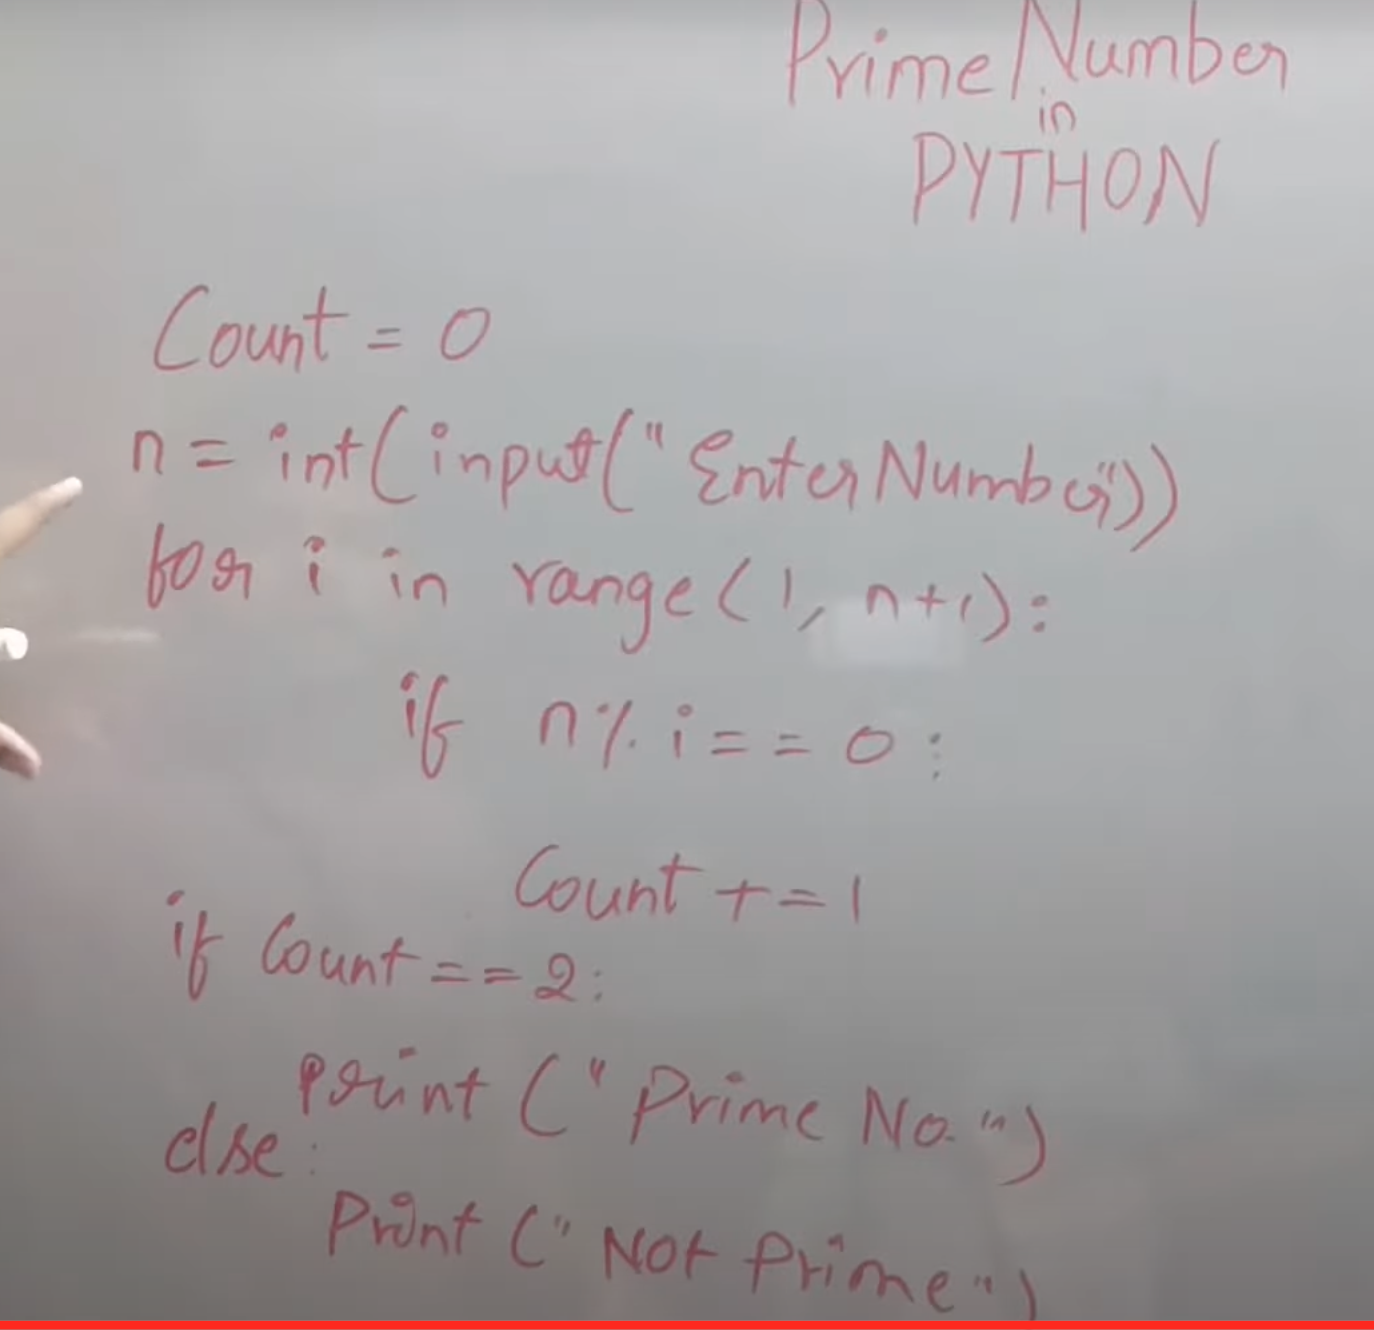 Prime Number
in
PYTHON
Count = 0
n = int(input("Enter Number"))
for i in range(1, n+1):
if n%i==0:
Count +=1
if Count==2:
print ("Prime No.")
else:
Print ("Not Prime")